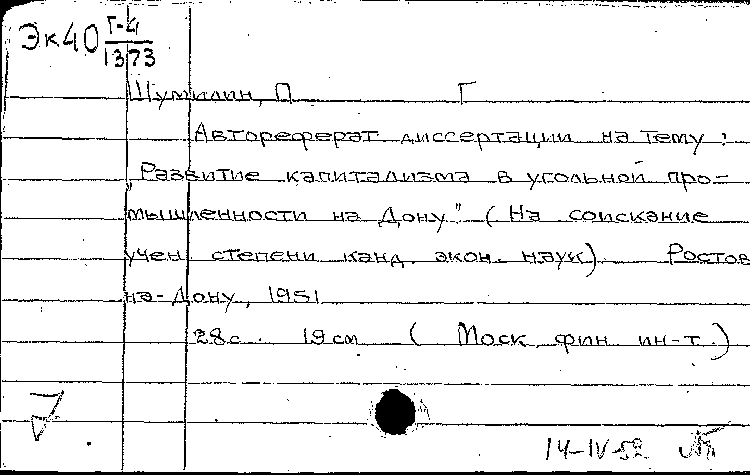 Эк40 Г-4
1373
Шумилин, П Г
Автореферат диссертации на тему:
"Развитие капитализма в угольной про-
мышленности на Дону" (На соискание
учен. степени канд. экон. наук). Ростов
на-Дону, 1951
28с. 19см (Моск. фин. ин-т.)
14-IV-52